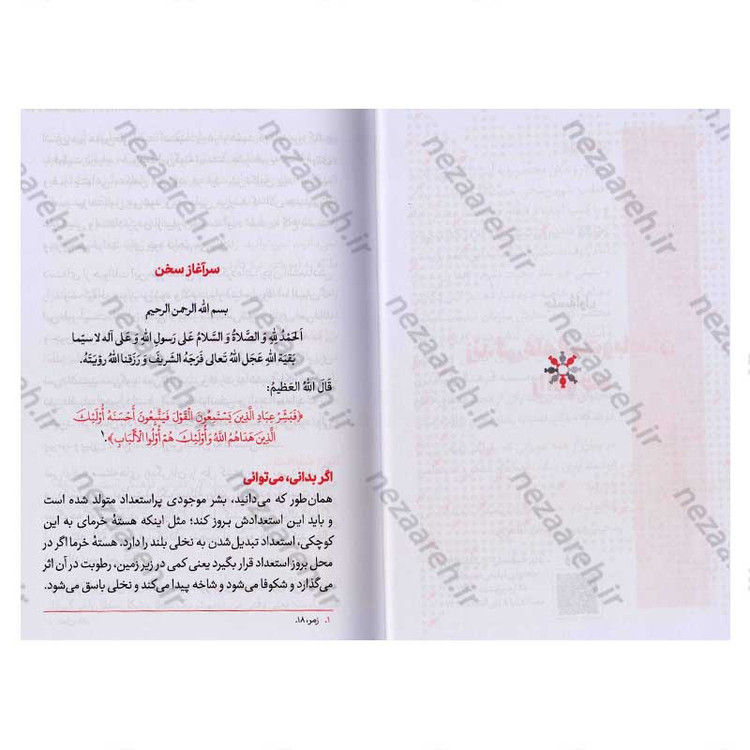 سرآغاز سخن
بسم الله الرحمن الرحیم
اَلحَمدُ لِلّهِ وَ الصَّلاةُ وَ السَّلامُ عَلی رَسولِ اللهِ وَ عَلی آله لا سیّما
بَقیَّة اللهِ عَجَلَ اللهُ تَعالی فَرَجَهُ الشَّریفَ وَ رَزَقنا اللهُ رؤیَتَهُ.
قالَ اللهُ العَظیمُ:
﴿فَبَشِّر عِبادِ الَّذینَ یَستَمِعونَ القَولَ فَیَتَّبِعونَ أَحسَنَهُ أُولَئِكَ
الَّذینَ هَداهُمُ اللهُ وَ أُولَئِكَ هُم أُولُوا الأَلبابِ﴾.۱
اگر بدانی، می‌توانی
همان‌طور که می‌دانید، بشر موجودی پراستعداد متولد شده است
و باید این استعدادش بروز کند؛ مثل اینکه هستهٔ خرمای به این
کوچکی، استعداد تبدیل‌شدن به نخلی بلند را دارد. هستهٔ خرما اگر در
محل بروز استعداد قرار بگیرد یعنی کمی در زیر زمین، رطوبت در آن اثر
می‌گذارد و شکوفا می‌شود و شاخه پیدا می‌کند و نخلی باسق می‌شود.
۱. زمر، ۱۸.
nezaareh.ir
nezaareh.ir
nezaareh.ir
nezaareh.ir
nezaareh.ir
nezaareh.ir
nezaareh.ir
nezaareh.ir
nezaareh.ir